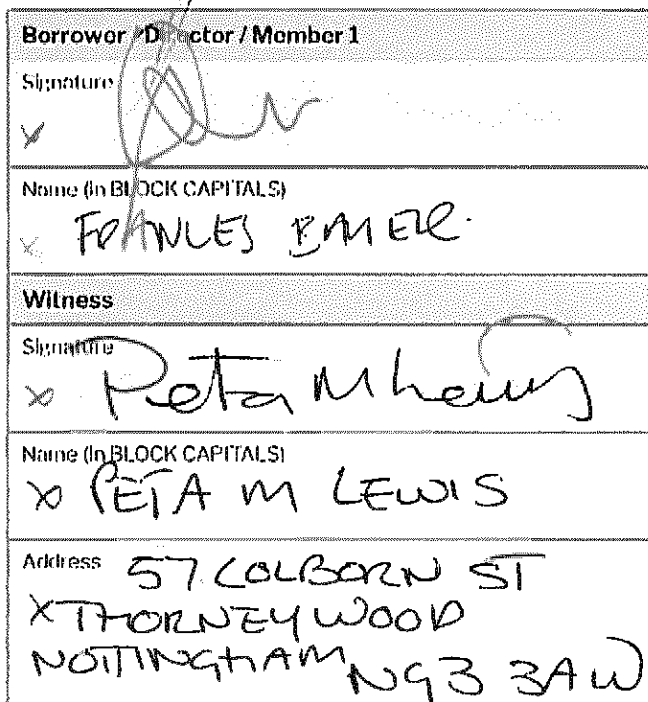 Borrower / Director / Member 1
Signature
x
Name (in BLOCK CAPITALS)
x FRANCES
Witness
Signature
x Peta M Lewis
Name (in BLOCK CAPITALS)
x PETA M LEWIS
Address 57 COLBORN ST
x THORNEYWOOD
NOTTINGHAM NG3 3AW